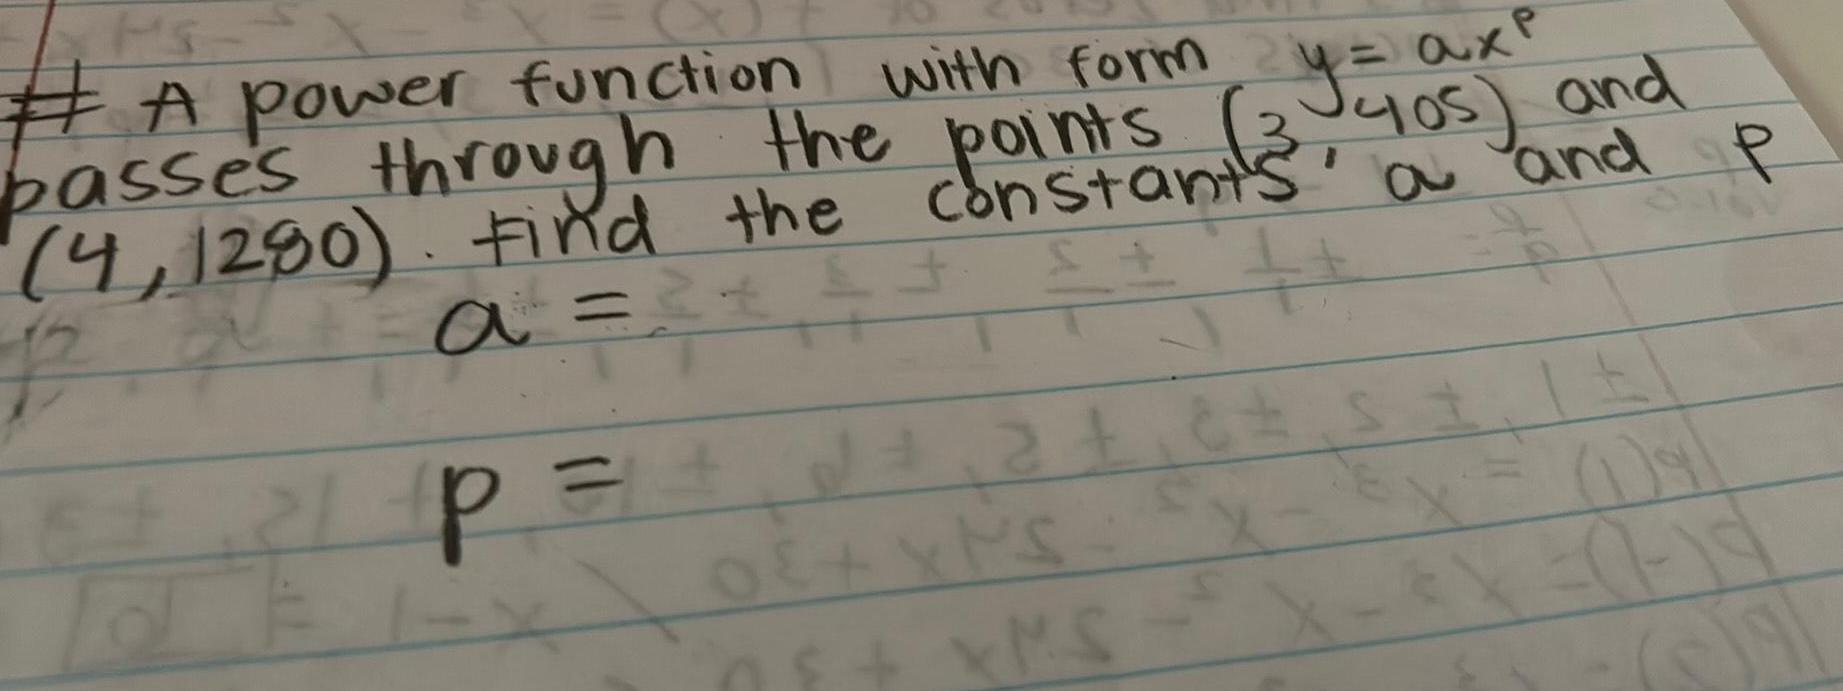 # A power function with form y = ax^p
passes through the points (3, 405) and
(4, 1280). Find the constants a and p
a =
p =